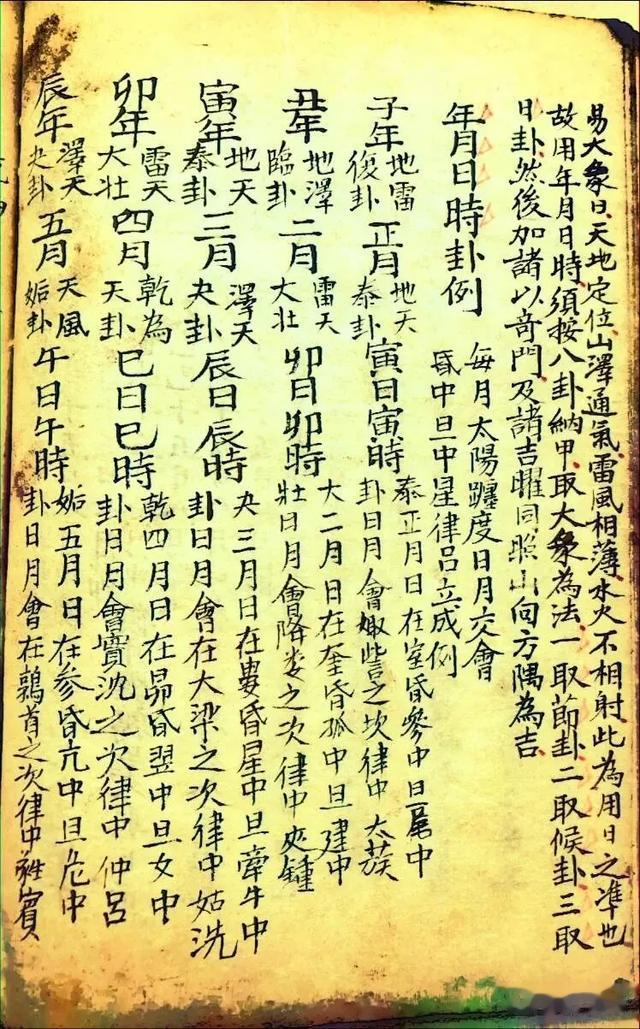 易大象曰天地定位山澤通氣雷風相薄水火不相射此為用日之準也
故用年月日時須按八卦納甲取大象為法一取節卦二取候卦三取
日卦然後加諸以奇門及諸吉曜同照山向方隅為吉
年月日時卦例
每月太陽躔度日月交會
昏中旦中星律呂立成例
子年
地雷
復卦
正月
地天
泰卦
寅日寅時
泰正月日在室昏參中旦尾中
卦日月會娵訾之次律中太蔟
丑年
地澤
臨卦
二月
雷天
大壯
卯日卯時
大二月日在奎昏孤中旦建中
壯日月會降娄之次律中夾鍾
寅年
地天
泰卦
三月
澤天
夬卦
辰日辰時
夬三月日在婁昏星中旦牽牛中
卦日月會在大梁之次律中姑洗
卯年
雷天
大壯
四月
乾為
天卦
巳日巳時
乾四月日在昴昏翌中旦女中
卦日月會實沈之次律中仲呂
辰年
澤天
夬卦
五月
天風
姤卦
午日午時
姤五月日在参昏亢中旦危中
卦日月會在鶉首之次律中蕤賓